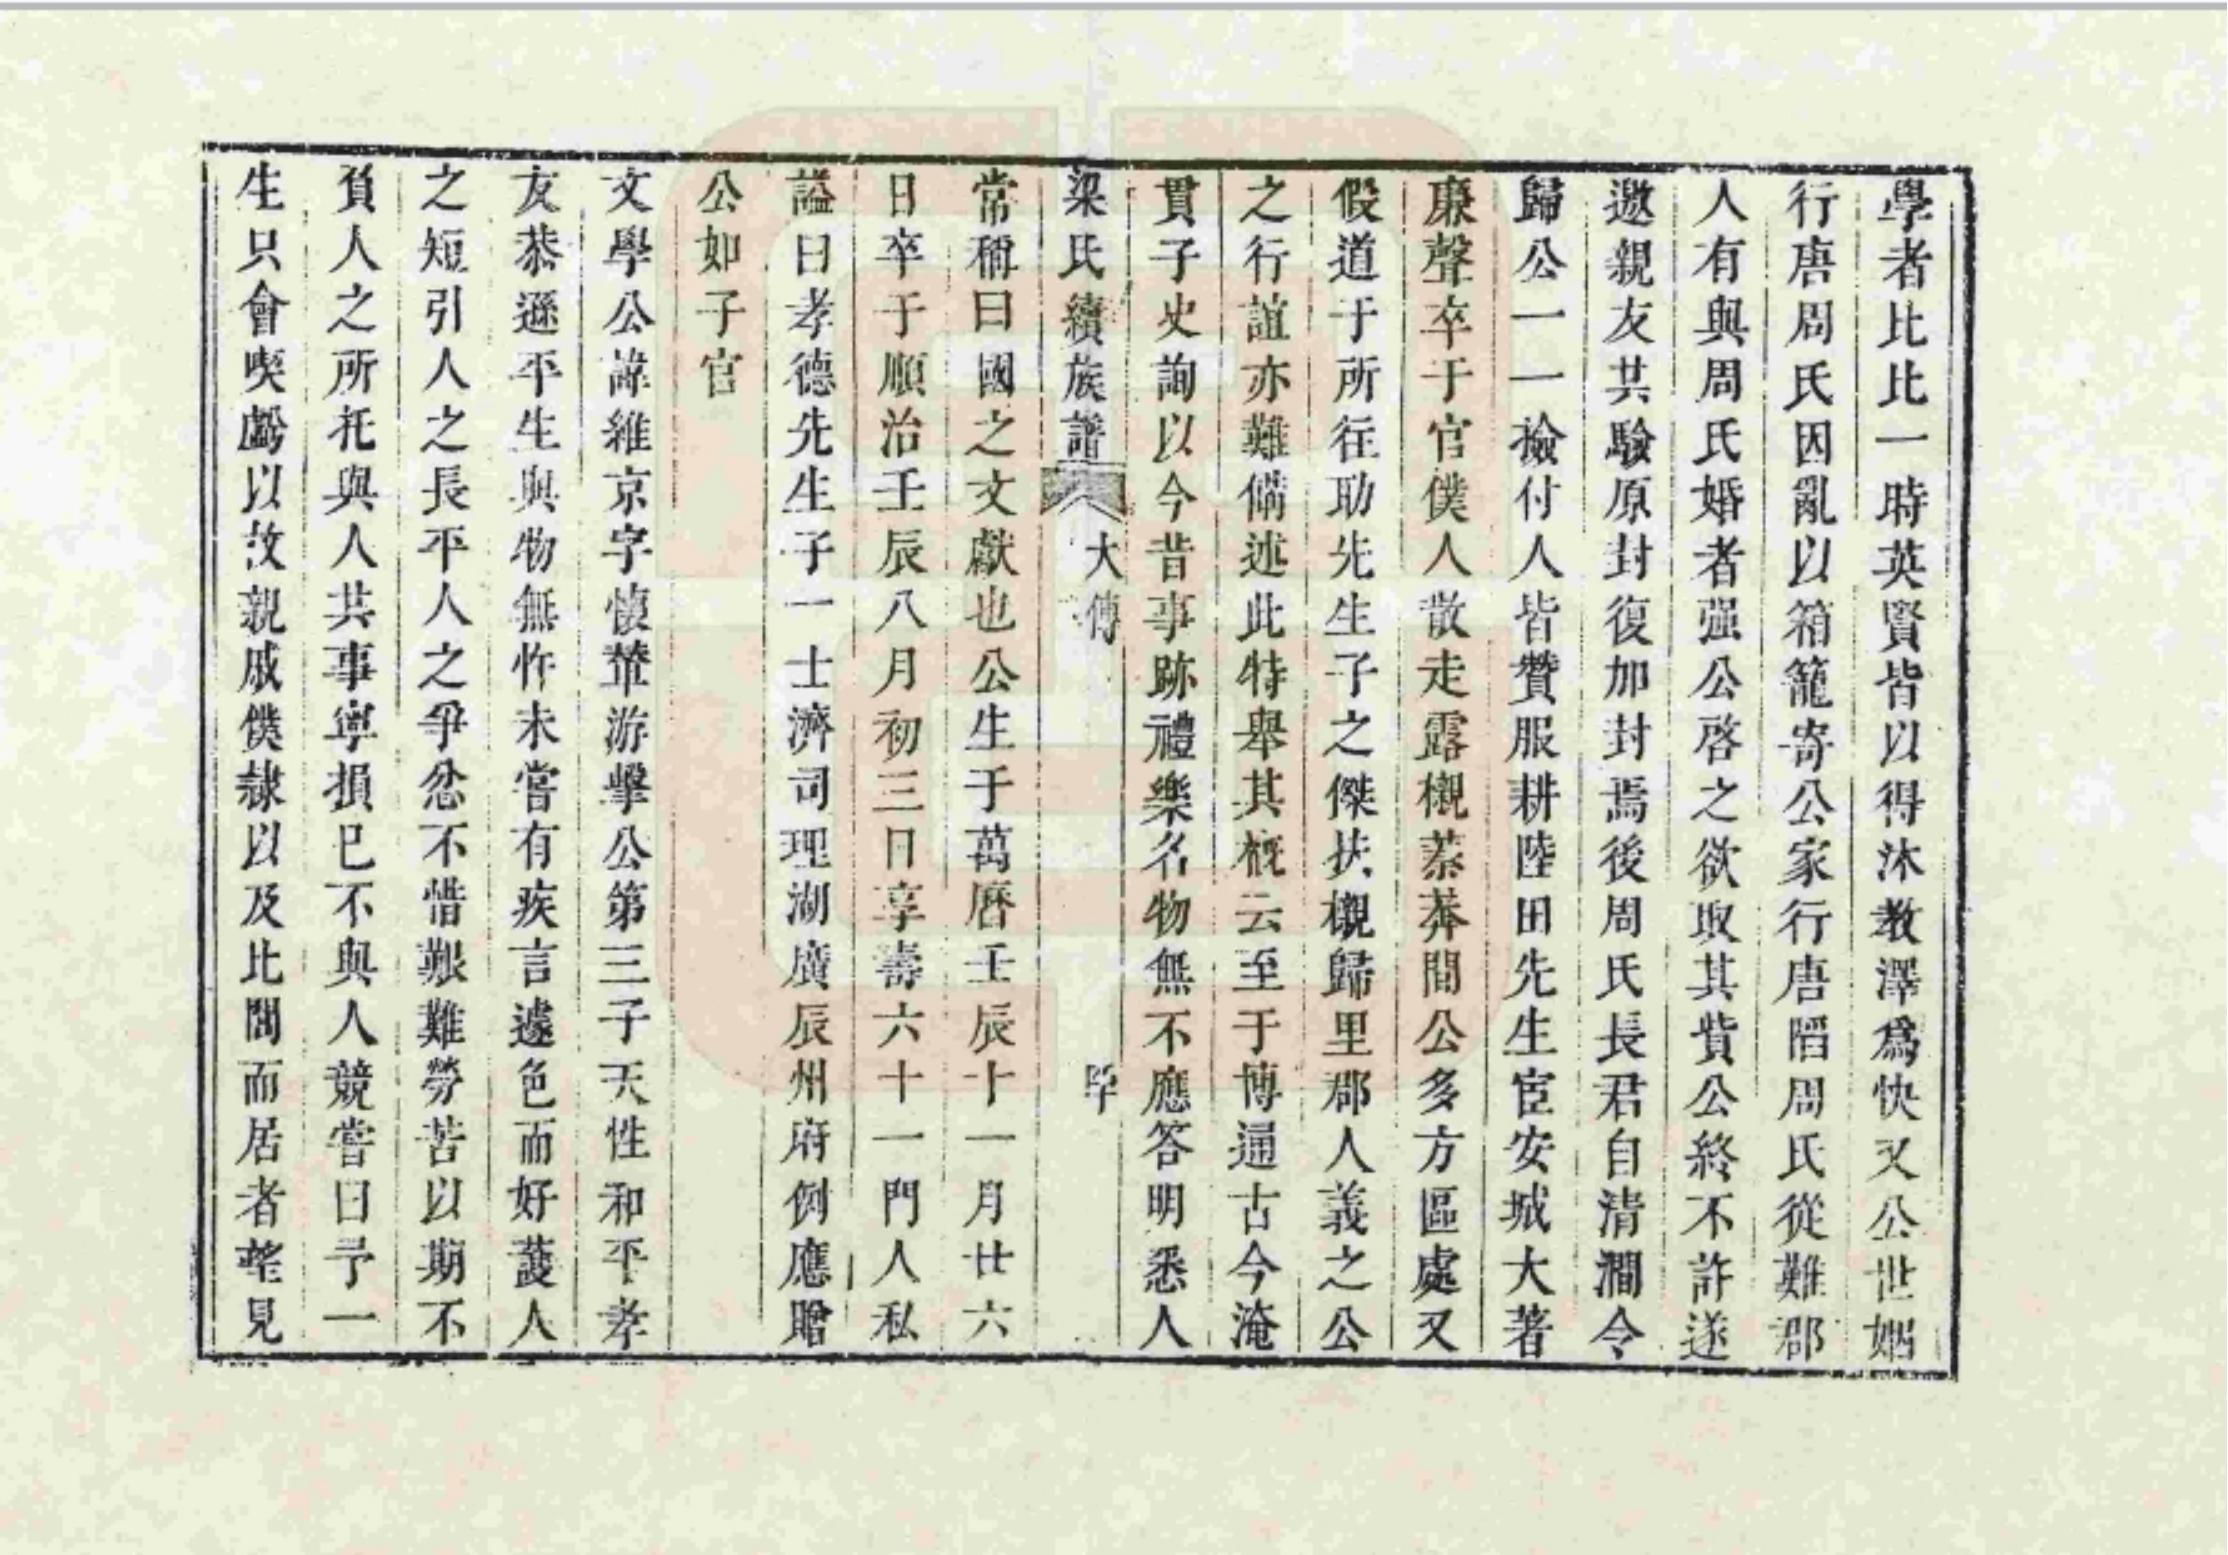 學者比比一時英賢皆以得沐教澤爲快又公世姻
行唐周氏因亂以箱籠寄公家行唐陷周氏從難郡
人有與周氏婚者强公啓之欲取其貲公終不許遂
邀親友共驗原封復加封焉後周氏長君自清澗令
歸公一一撿付人皆贊服耕陸田先生宦安城大著
廉聲卒于官僕人散走露櫬蓁莽間公多方區處又
假道于所往助先生子之傑扶櫬歸里郡人義之公
之行誼亦難備述此特舉其概云至于博通古今淹
貫子史詢以今昔事跡禮樂名物無不應答明悉人
梁氏續族譜
大傳
常稱曰國之文獻也公生于萬曆壬辰十一月廿六
日卒于順治壬辰八月初三日享壽六十一門人私
謚曰孝德先生子一士濟司理湖廣辰州府例應贈
公如子官
文學公諱維京字懷輦游擊公第三子天性和平孝
友恭遜平生與物無忤未嘗有疾言遽色而好護人
之短引人之長平人之爭忿不惜艱難勞苦以期不
負人之所托與人共事寧損已不與人競嘗曰予一
生只會喫虧以故親戚僕隸以及比閭而居者望見